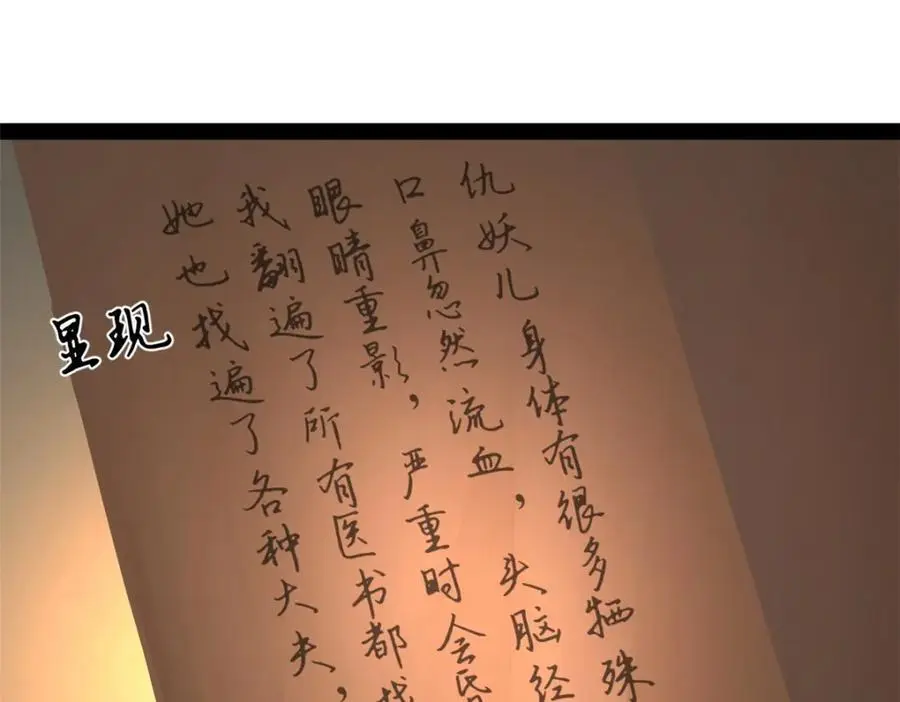 仇妖儿身体有很多牺殊
口鼻忽然流血，头脑经
眼睛重影，严重时会昏
我翻遍了所有医书都找
她也找遍了各种大夫，
显现